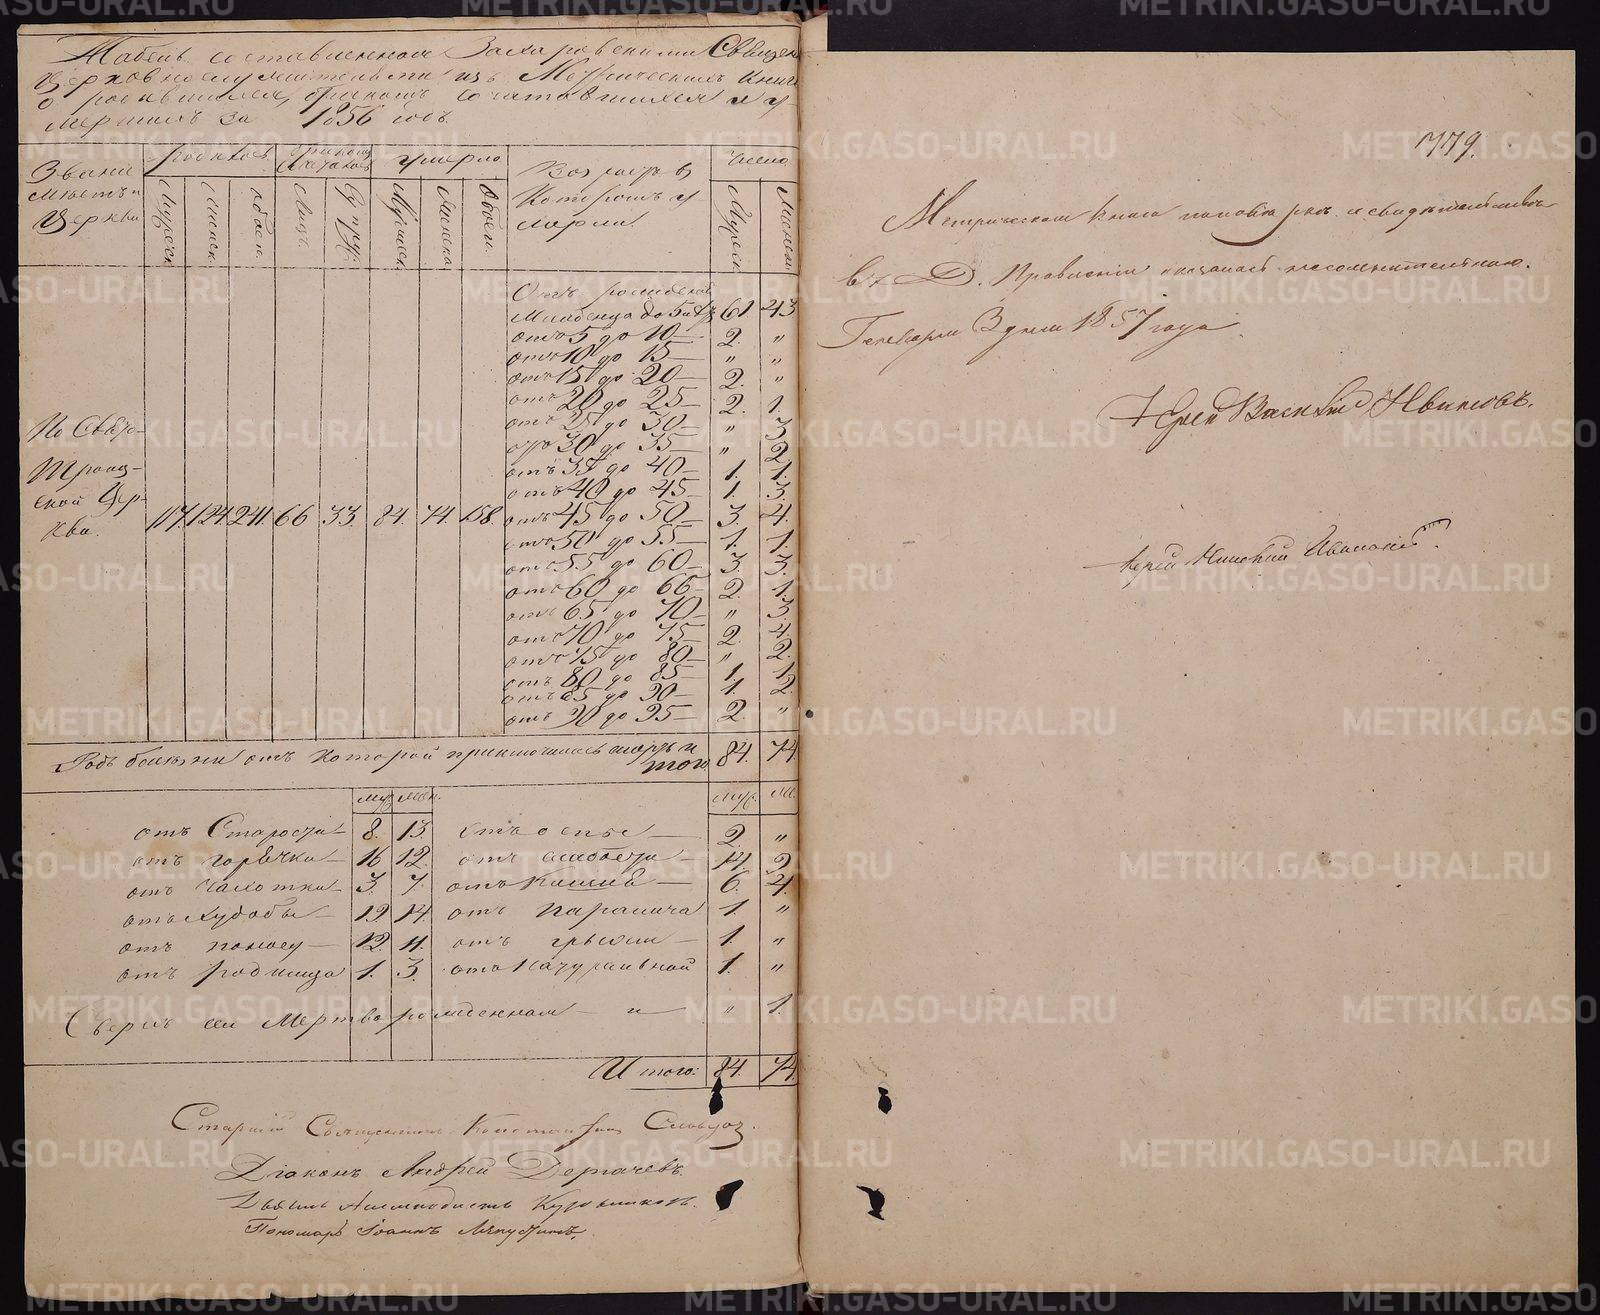 Табель составленная Захаровскими Священно
Церковнослужительми изъ Метрическихъ книгъ
о родившихся, бракомъ сочетавшихся и у-
мершихъ за 1856 годъ.
Звание местъ и Церкви
родилось
Мужеск.
Женск.
обоего.
бракомъ сочеталось
Лицъ.
Супруж.
умерло
Мужеск.
Женска.
Обоего.
Возрастъ в которомъ умерли.
Число
Мужеск.
Женск.
По Свято-
Троиц-
ской Цер-
кви.
117. 124. 241. 66 33. 84. 74. 158.
Отъ рождения
Младенца до 5ти 61. 43
отъ 5 до 10 — 2. „
отъ 10 до 15 — „ „
отъ 15 до 20 — 2. „
отъ 20 до 25 — 2. 1.
отъ 25 до 30 — „ 3
отъ 30 до 35 — „ 2
отъ 35 до 40 — 1. 1.
отъ 40 до 45 — 1. 3.
отъ 45 до 50 — 3. 4.
отъ 50 до 55 — 1. 1.
отъ 55 до 60 — 3. 3.
отъ 60 до 65 — 2. 1.
отъ 65 до 70 — „ 3.
отъ 70 до 75 — 2. 4.
отъ 75 до 80 — „ 2.
отъ 80 до 85 — 1. 1.
отъ 85 до 90 — 1. 2.
отъ 90 до 95 — 2. „
Родъ болезни отъ которой приключилась смерть итого 84. 74.
муж. жен. муж. ж.
отъ Старости — 8. 13. отъ оспы — 2. „
отъ горячки — 16 12. отъ слабости — 14. 9.
отъ чахотки — 3. 7. отъ Кашля — 6. 4.
отъ Худобы — 19 14. отъ паралича 1. „
отъ поносу — 12. 11. отъ грыжи — 1. „
отъ родимца 1. 3. отъ Натуральной 1. „
Сверхъ сего Мертворожденная — „ 1.
Итого: 84. 74.
Старший Священникъ Константинъ Словцов.
Диаконъ Андрей Дергачевъ.
Дьячекъ Курочкинъ.
Пономарь Иоаннъ Ляпустинъ.
779.
Метрическая книга сия свидетельствована
въ Д. Правлении и оказалась
Генваря 3 дня 1857 года.
Иерей Василий Ивановъ.
Иерей
METRIKI.GASO-URAL.RU